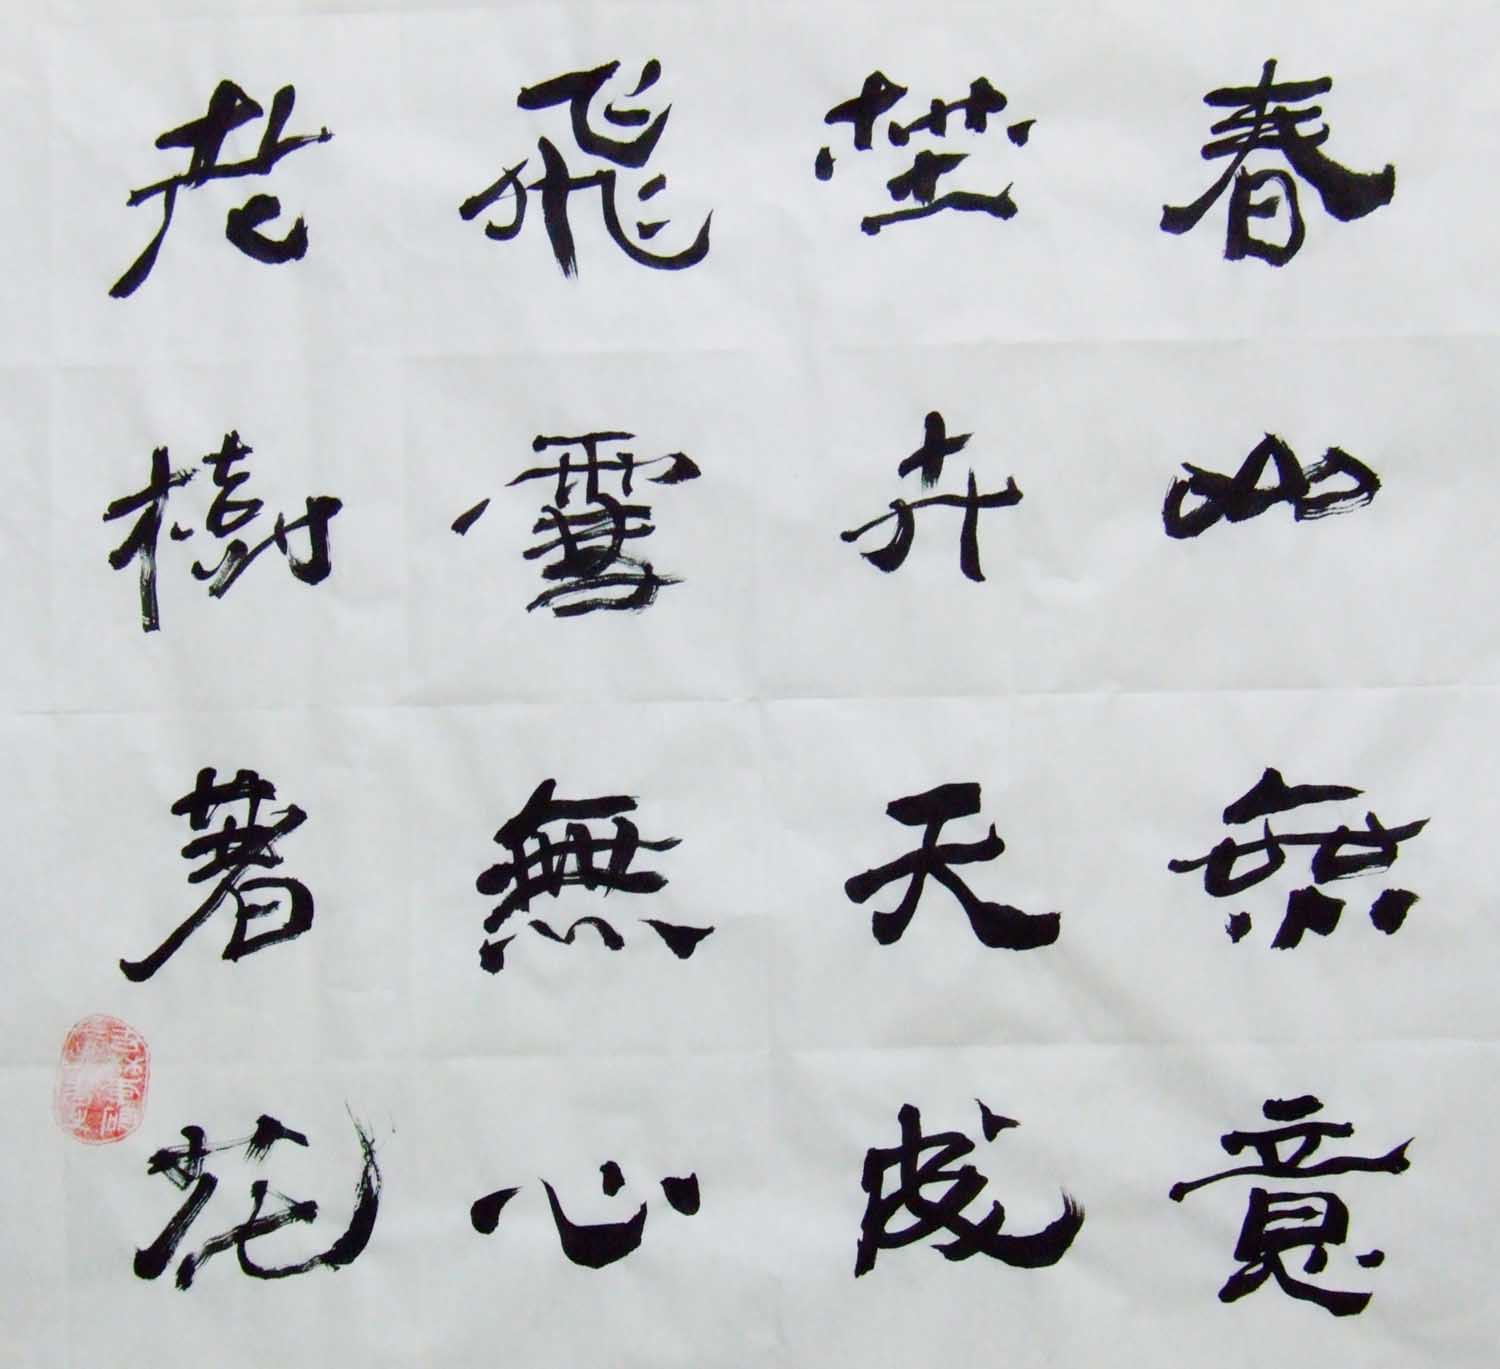 春山無意
埜卉天成
飛雪無心
老樹著花